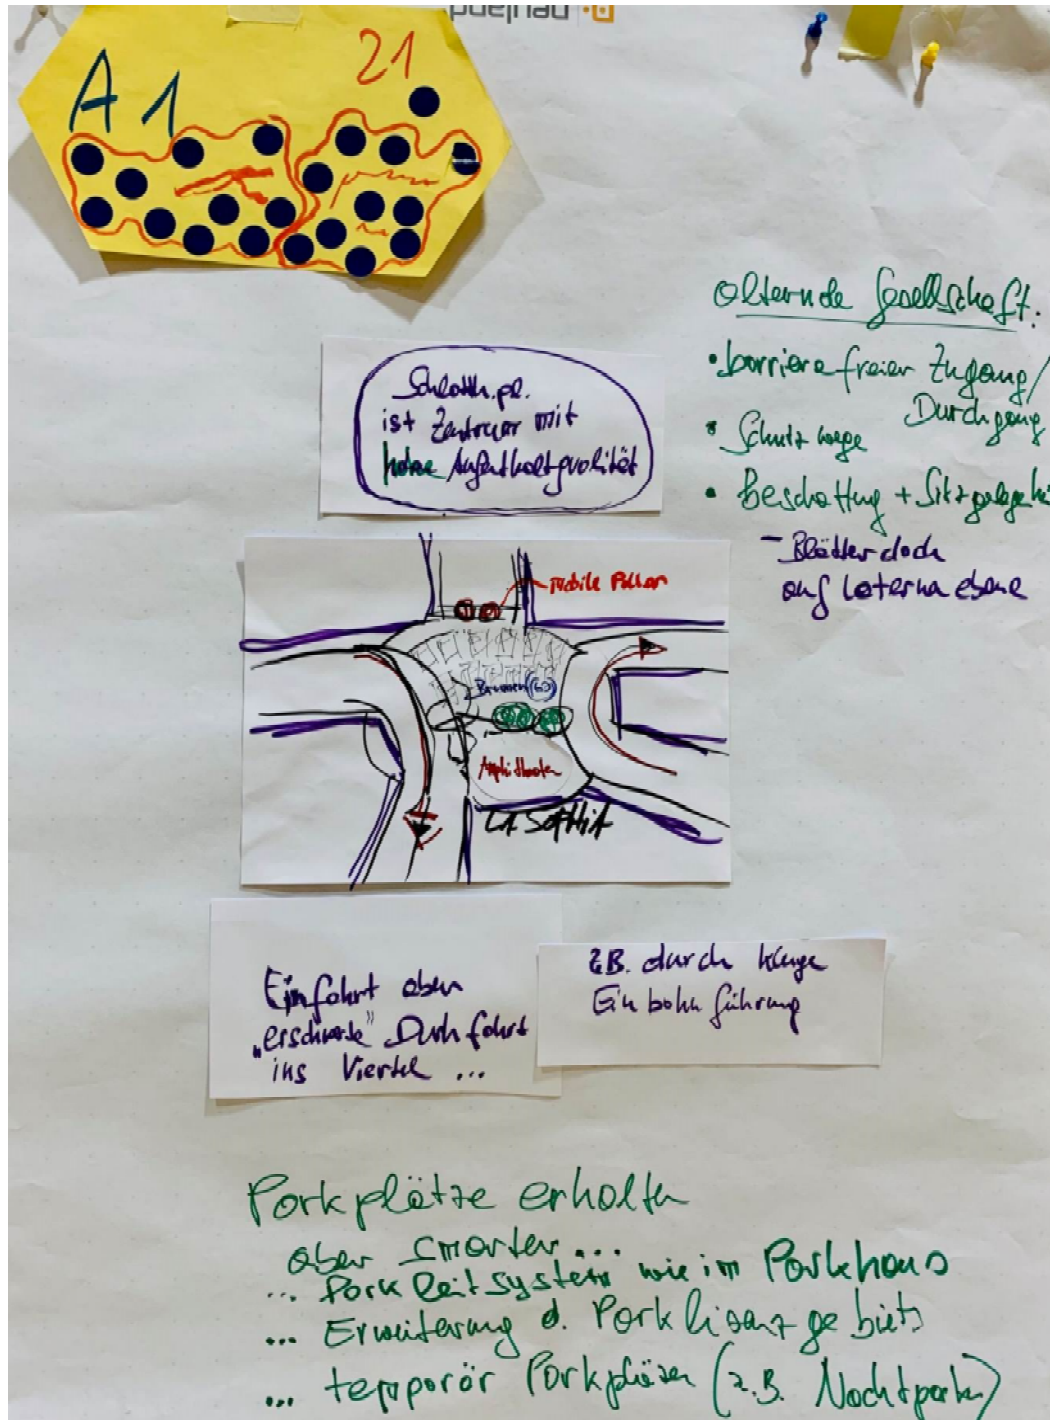 neuland
A1
21
alternde Gesellschaft:
• barrierefreier Zugang/
Durchgang
• Schutzwege
• Beschattung + Sitzgelege
- Blätterdach
auf Laternaebene
ist Zentrum mit
hohe Aufenthaltqualität
Mobile Poller
Brunnen
Amphitheater
LA SOPHIA
Einfahrt oben
"erschwerte" Durchfahrt
ins Viertel ...
z.B. durch kluge
Einbahnführung
Parkplätze erhalten
aber smarter...
... Parkleitsystem wie im Parkhaus
... Erweiterung d. Parklizenzgebiets
... temporär Parkplätzen (z.B. Nachtparken)